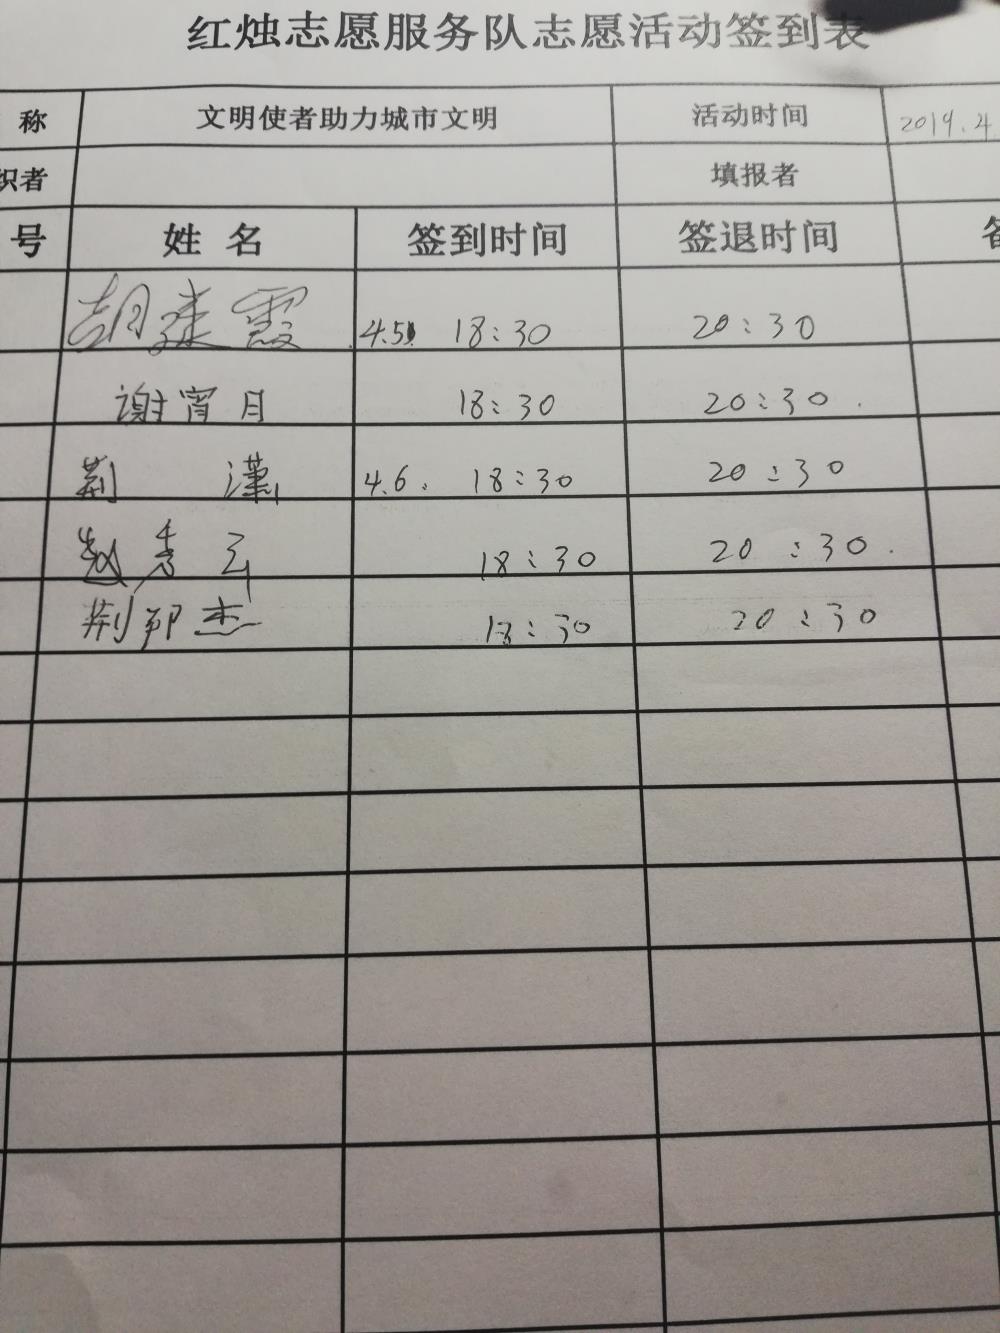 红烛志愿服务队志愿活动签到表
称 文明使者助力城市文明 活动时间 2019.4.
织者 填报者
号 姓名 签到时间 签退时间 备
胡 霞 4.5 18:30 20:30
谢宵月 18:30 20:30.
荆潇 4.6. 18:30 20:30
赵秀云 18:30 20:30.
荆郅杰 18:30 20:30